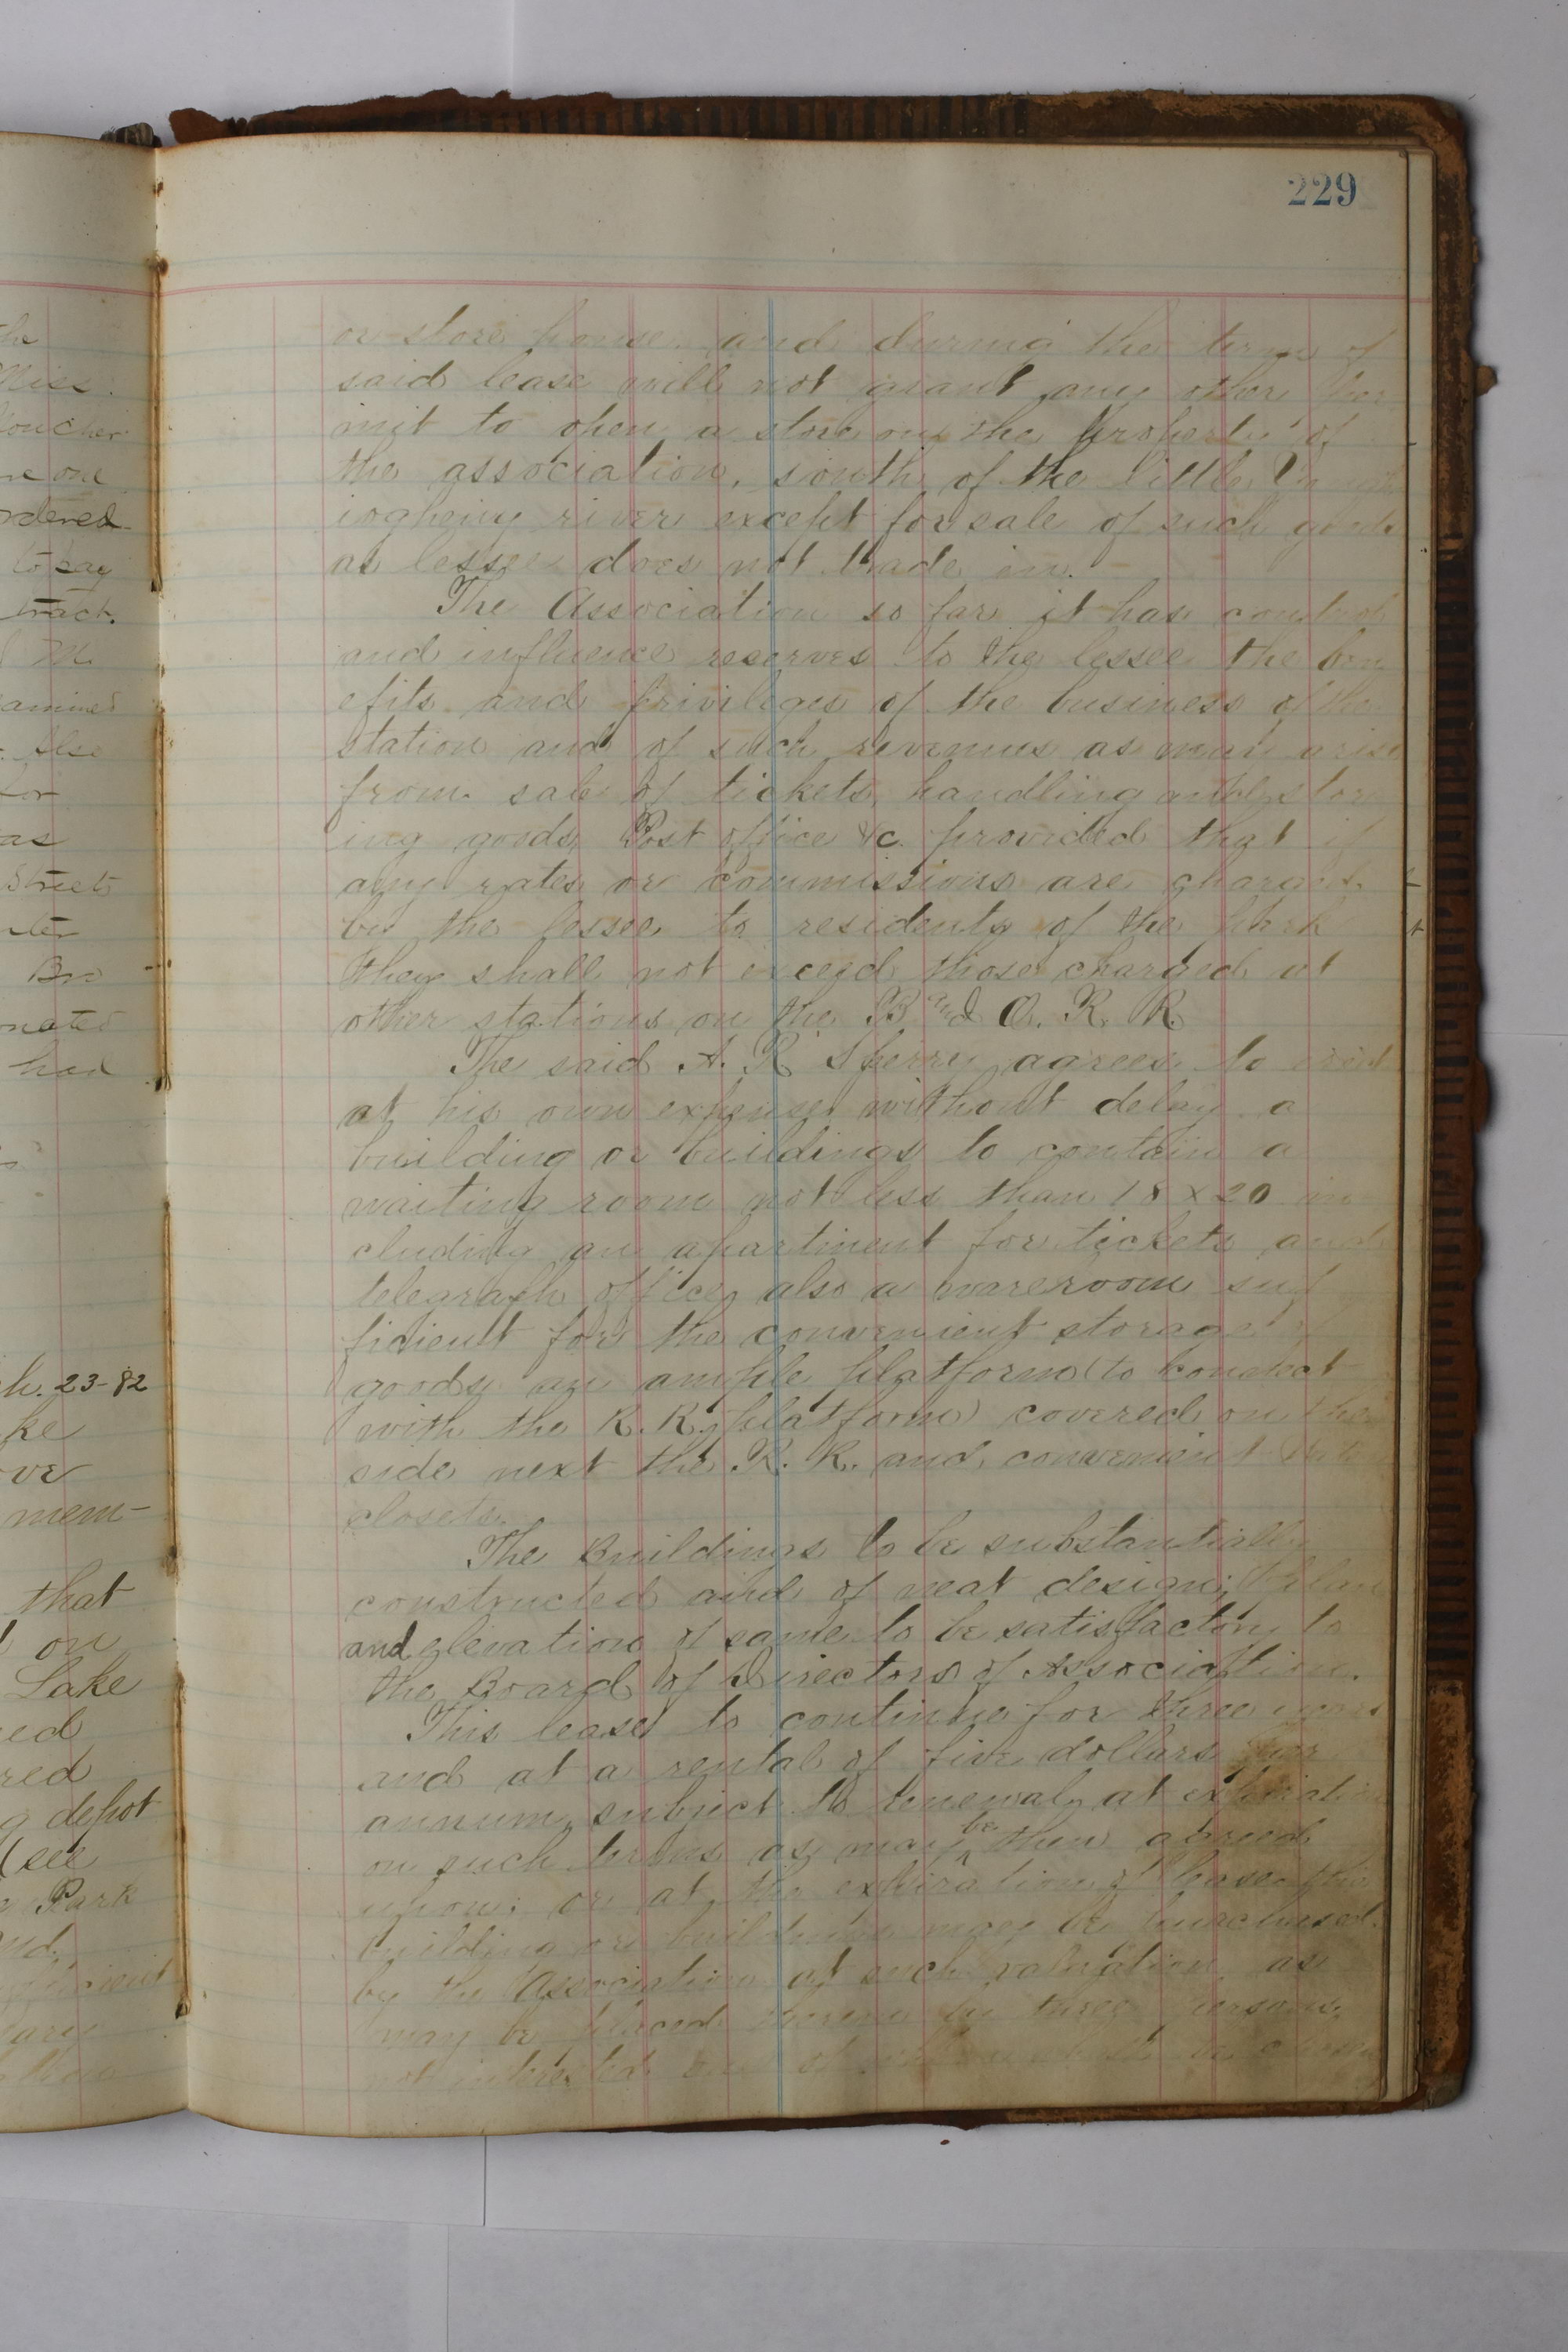 229
or store house. and during the term of
said lease will not grant any other per
mit to open a store on the property of
the association, south of the little Yough
iogheny river except for sale of such goods
as lessee does not trade in.
The Association so far it has control
and influence reserves to the lessee the ben
efits and privileges of the business of the
station and of such revenues as may arise
from sale of tickets, handling and stor
ing goods, Post office &c. provided that if
any rates or commissions are charged
by the lessee to residents of the park
they shall not exceed those charged at
other stations on the B and O. R. R.
The said A. R. Sperry agrees to erect
at his own expense without delay a
building or buildings to contain a
waiting room not less than 18 x 20 in
cluding an apartment for tickets and
telegraph office, also a wareroom suf
ficient for the convenient storage of
goods an ample platform (to connect
with the R. R. platform) covered on the
side next the R. R. and convenient water
closets.
The Buildings to be substantially
constructed and of neat design, plan
and elevation of same to be satisfactory to
the Board of Directors of Association.
This lease to continue for three years
and at a rental of five dollars per
annum, subject to renewal, at expiration
on such terms as may be then agreed
upon; or at the expiration of lease the
building or buildings may be purchased
by the Association at such valuation as
may be placed thereon by three persons,
not interested
the
Miss.
Voucher
one
ordered
to pay
tract.
M.
amined
Also
for
as
Streets
Bro
had
ch. 23-82
ke
ove
mem-
that
on
Lake
ed
red
depot
(see
Park